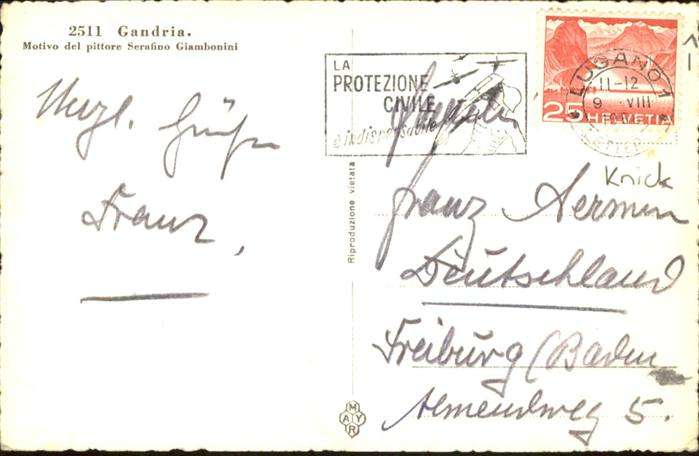 2511 Gandria.
Motivo del pittore Serafino Giambonini
Herzl. Grüße
Franz,
Riproduzione vietata
MAYR
LA
PROTEZIONE
CIVILE
è indispensabile
LUGANO 1
11-12
9. VIII
25 HELVETIA
Knick
Familie
Franz Aermen
Deutschland
Freiburg/Baden
Almendweg 5.